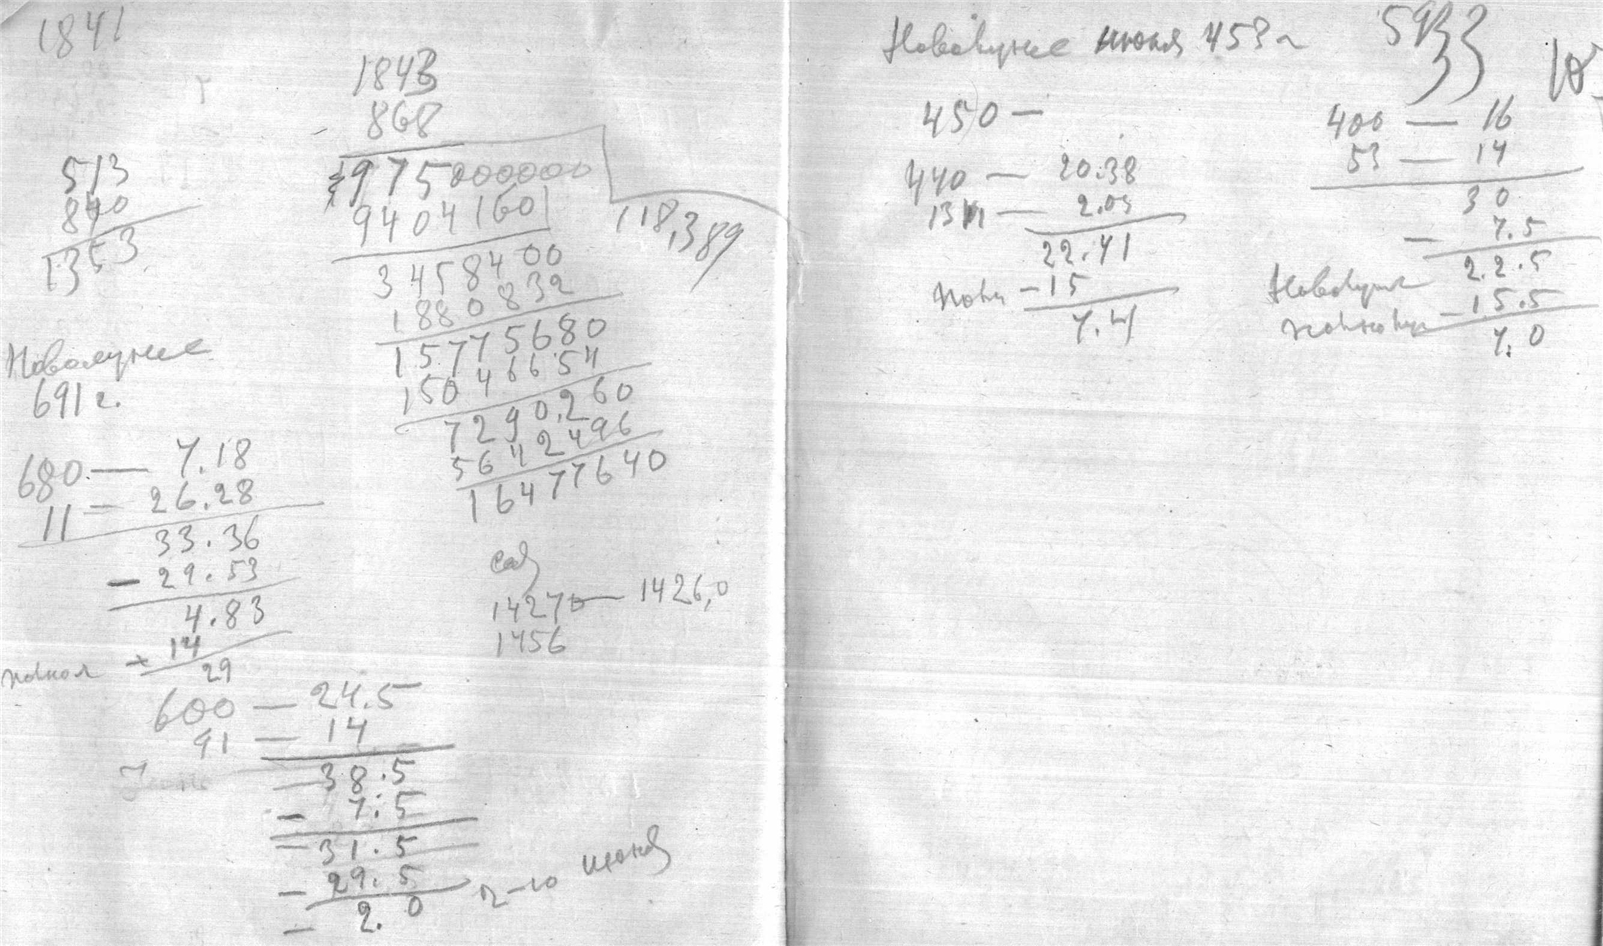 1841
1843
868
975000000
9404160
118,389
3458400
1880832
15775680
15046654
7290,260
5642496
16477640
513
840
1353
Новолуние
691 г.
680 — 7.18
11 — 26.28
33.36
— 29.53
4.83
+ 14
29
600 — 24.5
91 — 14
38.5
— 7.5
31.5
— 29.5
2.0
2-го июня
1427 — 1426,0
1456
Новолуние июня 453 г
450 —
440 — 20.38
13 — 2.03
22.41
— 15
7.41
400 — 16
53 — 14
30
— 7.5
22.5
Новолуние
— 15.5
7.0